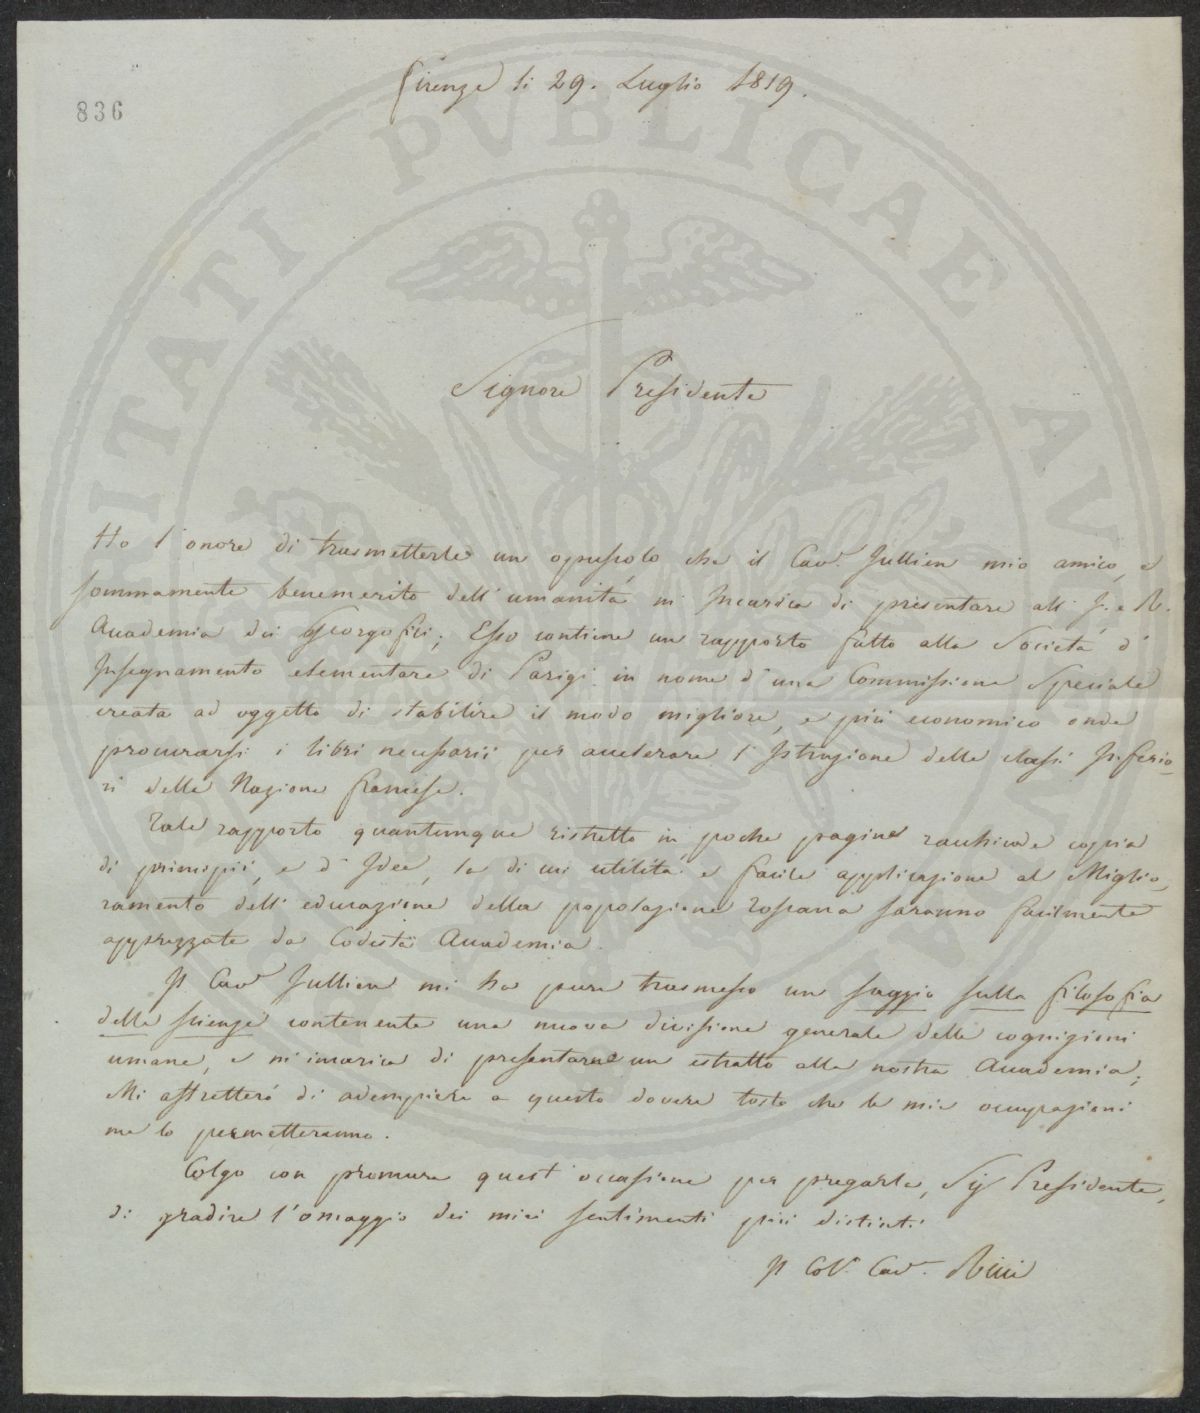 Firenze li 29. Luglio 1819.
836
PVBLICAE
ITATI
AV
Signore Presidente
Ho l'onore di trasmetterle un opuscolo che il Cav.r Jullien mio amico, e
sommamente benemerito dell'umanità m'Incarica di presentare all'I. e R.
Accademia dei Georgofili; Esso contiene un rapporto fatto alla Società d'
Insegnamento elementare di Parigi in nome d'una Commissione Speciale
creata ad oggetto di stabilire il modo migliore, e più economico onde
procurarsi i libri necessarii per accelerare l'Istruzione delle classi Inferio-
ri della Nazione francese.
Tale rapporto quantunque ristretto in poche pagine racchiude copia
di principii, e d'Idee, la di cui utilità e facile applicazione al Miglio-
ramento dell'educazione della popolazione Toscana saranno facilmente
apprezzate da Codesta Accademia.
Il Cav.r Jullien mi ha pure trasmesso un saggio sulla filosofia
delle scienze contenente una nuova divisione generale delle cognizioni
umane, e m'incarica di presentarne un estratto alla nostra Accademia;
Mi affretterò di adempiere a questo dovere tosto che le mie occupazioni
me lo permetteranno.
Colgo con premura quest'occasione per pregarla, Sig.r Presidente,
di gradire l'omaggio dei miei sentimenti più distinti.
Il Col.o Cav.r Ricci